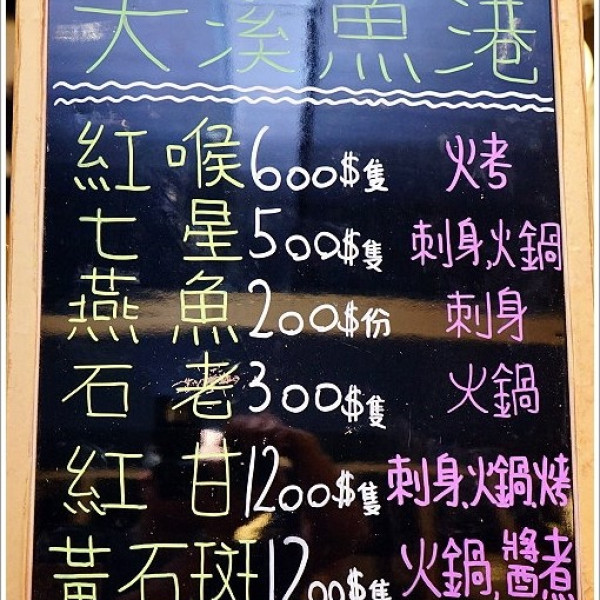 大溪魚港
紅喉600$隻 烤
七星500$隻 刺身,火鍋
燕魚200$份 刺身
石老300$隻 火鍋
紅甘1200$隻 刺身,火鍋,烤
黃石斑1200$隻 火鍋,醬煮